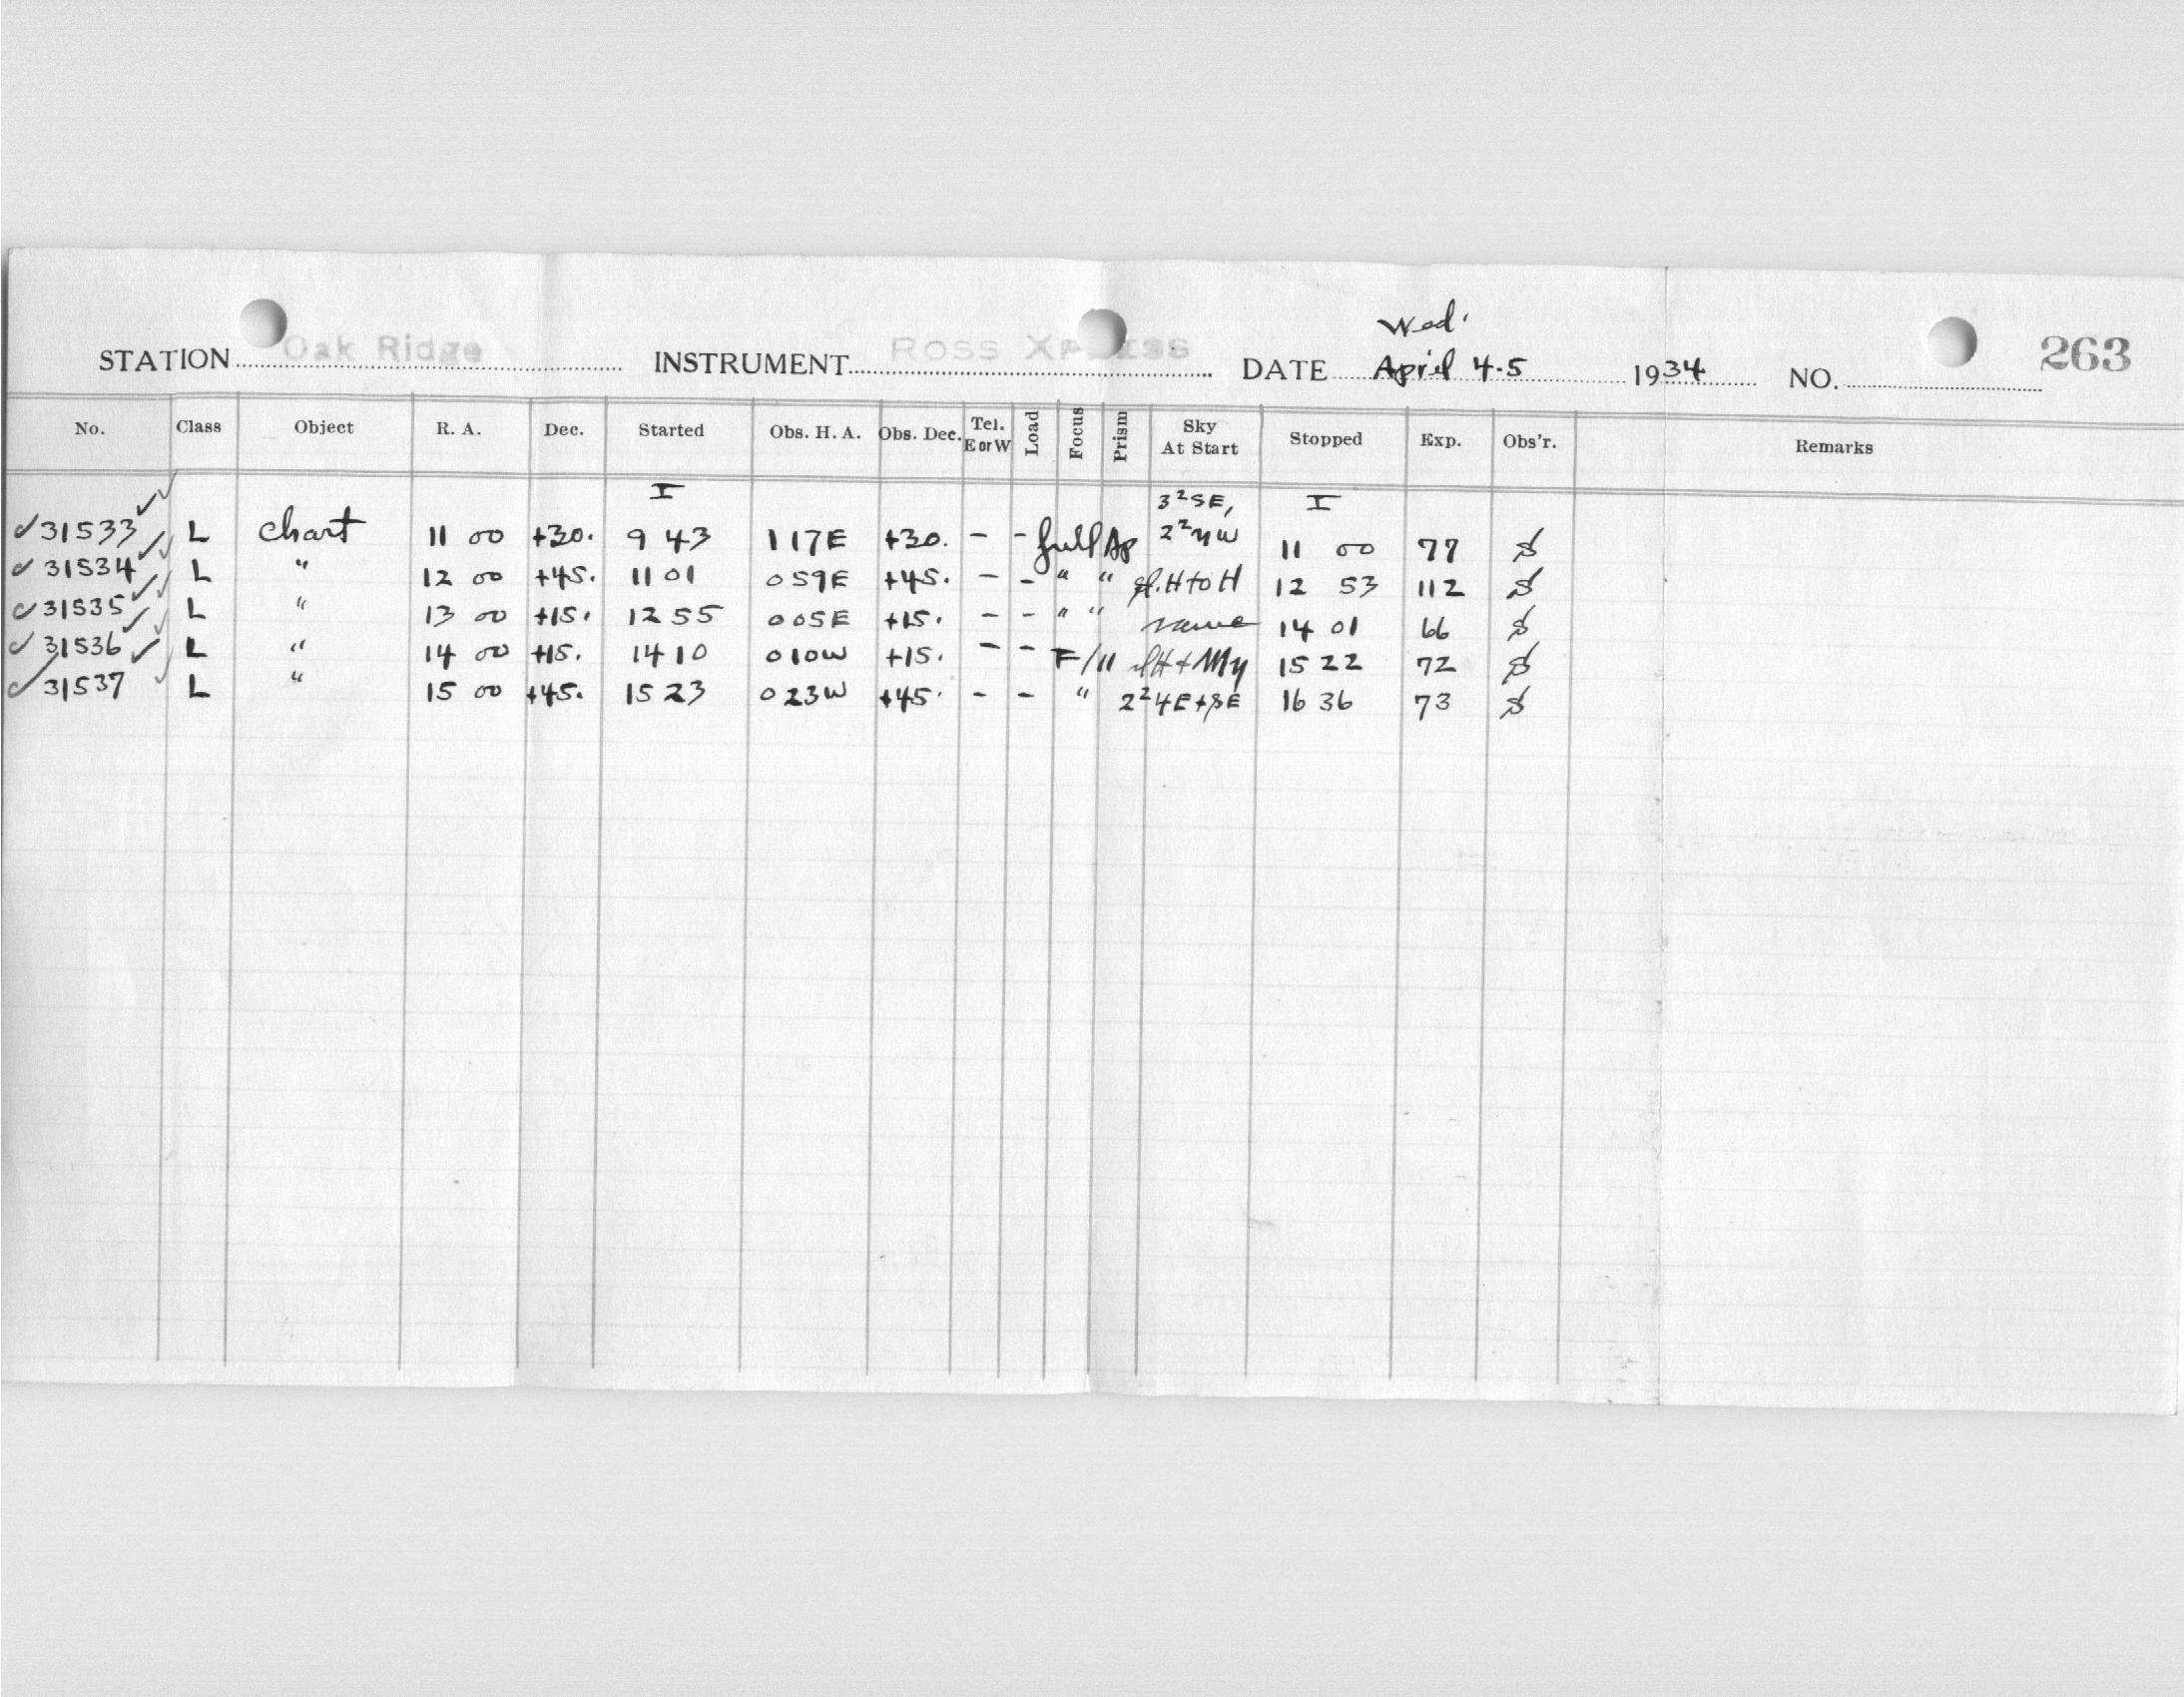 Wed.
STATION Oak Ridge INSTRUMENT Ross DATE April 4-5 1934 NO. 263
No. Class Object R. A. Dec. Started Obs. H. A. Obs. Dec. Tel. E or W Load Focus Prism Sky At Start Stopped Exp. Obs'r. Remarks
I 3² SE, I
31533 L Chart 11 00 +30. 9 43 1 17E +30. - - full Ap 2² NW 11 00 77
31534 L " 12 00 +45. 11 01 0 59E +45. - - " " H to H 12 53 112
31535 L " 13 00 +15. 12 55 0 05E +15. - - " " same 14 01 66
31536 L " 14 00 +15. 14 10 0 10W +15. - - F/11 15 22 72
31537 L " 15 00 +45. 15 23 0 23W +45. - - " 2² 4E+SE 16 36 73